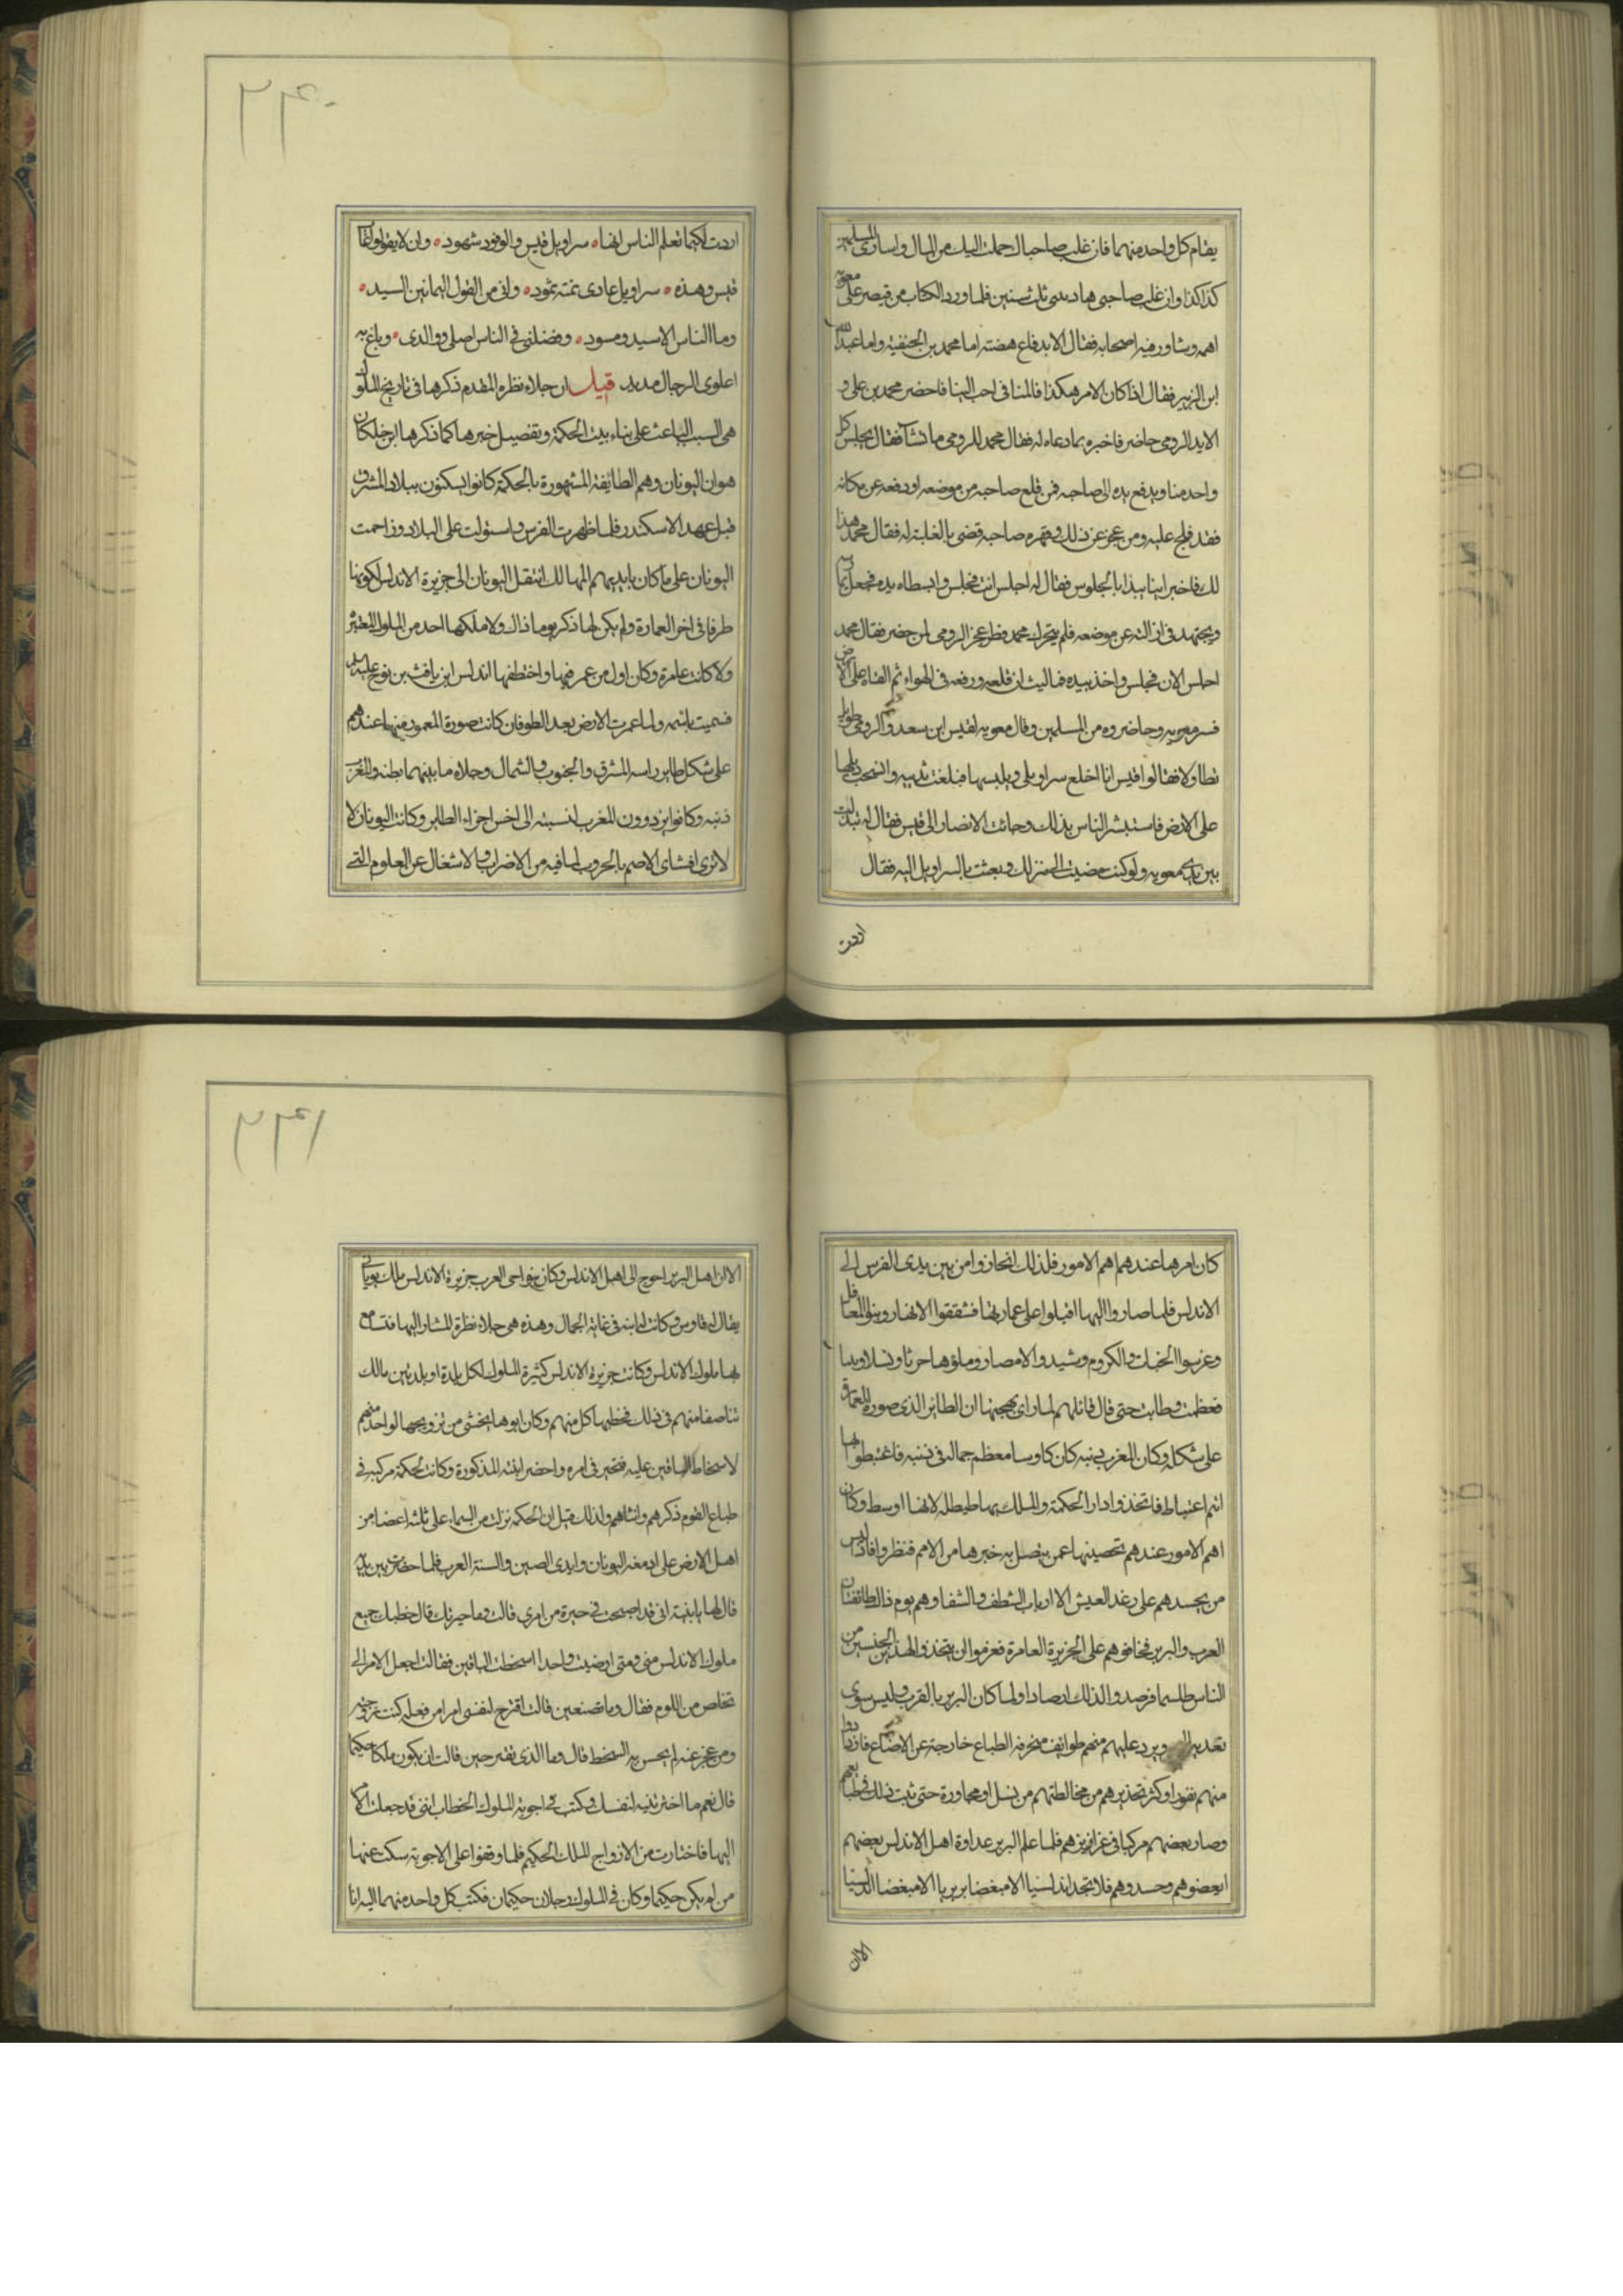 يقام كل واحد منهما فان غلب صاحبك حملت اليك من المال واسارى المسلمين
كذا كذا وان غلب صاحبي هادنني ثلث سنين فلما ورد الكتاب من قيصر على معوية
اهمه وشاور فيه اصحابه فقال الا يدفاع هضته اما محمد بن الحنفية واما عبد الله
ابن الزبير فقال اذا كان الامر هكذا فالمنافى احب الينا فاحضر محمد بن على و
الايد الرومي حاضر فاخبره بما دعاه له فقال محمد للرومي ما تشآء فقال يجلس كل
واحد منا ويدفع يده الى صاحبه فمن قلع صاحبه من موضعه او رفعه عن مكانه
فقد فلج عليه ومن عجز عن ذلك وقهره صاحبه قضى بالغلبة له فقال محمد هذا
لك فاخبر اينا يبدا بالجلوس فقال له اجلس انت فجلس وابسطاه يده فجعل
ويجتهد فى ازالته عن موضعه فلم يتحرك محمد وظهر عجز الرومي لمن حضر فقال محمد
اجلس الان فجلس واخذ بيده فما لبث ان قلعه ورفعه فى الهواء ثم القاه على الارض
فسر معويه وحاضروه من المسلمين وقال معويه لقيس ابن سعد والرومي طويله
تطاولا فقالوا قيس انا اخلع سراويلي ويلبسها فبلغت ثدييه وانسحب ذيلها
على الارض فاستبشر الناس بذلك وجائت الانصار الى قيس فقال له تبذلت
بين يدى معويه ولو كنت مضيت الى منزلك وبعثت بالسراويل اليه فقال
اردت
٢٣٠
اردت لكيما تعلم الناس انها سراويل قيس والوفود شهود وان لا يقولوا
قيس وهذه سراويل عادى نمته ثمود وانى من القول اليمانين السيد
وما الناس الا سيد ومسود وفضلني فى الناس اصلي ووالدى وباع به
اعلوى الرجال مديد قيل ان جلاء نظره المقدم ذكرها فى تاريخ الملوك
هى السبب الباعث على بناء بيت الحكمة وتفصيل خبرها كما ذكرها ابن خلكان
هو ان اليونان وهم الطائفة المشهورة بالحكمة كانوا يسكنون ببلاد المشرق
قبل عهد الاسكندر فلما ظهرت الفرس واستولت على البلاد وزاحمت
اليونان على ما كان بايديهم الممالك انتقل اليونان الى جزيرة الاندلس لكونها
طرفا فى اخر العمارة ولم يكن لها ذكر يوما ذاك ولا ملكها احد من الملوك المعتبر
ولا كانت عامرة وكان اول من عمر فيها واختطفها اندلس ابن يافث بن نوح عليه السلم
فسميت باسمه ولما عمرت الارض بعد الطوفان كانت صورة المعمور منها عندهم
على شكل طاير راسه المشرق والجنوب والشمال وجلاه ما بينهما بطنه والمغرب
ذنبه وكانوا يزدرون للمغرب لنسبته الى اخس اجزاء الطاير وكانت اليونان لا
لا ترى افشاى الاصم بالحروب لما فيه من الاضراب والاشغال عن العلوم التى
كان امرها عندهم اهم الامور فلذلك انحازوا من بين يدى الفرس الى
الاندلس فلما صاروا اليها اقبلوا على عمارتها فشققوا الانهار وبنوا المعاقل
وغرسوا الجنات والكروم وشيدوا الامصار وملؤها حرثا ونسلا وبنيا
فعظمت وطابت حتى قال قائلهم لما راى بهجتها ان الطائر الذى صورة العمارة
على شكله وكان المغرب ذنبه كان كاوسا معظم جماله فى ذنبه فاغتبطوا بها
اتم اغتباط فاتخذوا دار الحكمة والملك بها طيطله لانها اوسط وكان
اهم الامور عندهم تحصينها عمن يتصل به خبرها من الامم فنظروا فاذا ليس
من يحسدهم على رغد العيش الا ارباب الشظف والشقا وهم يوم ذا الطائفتان
العرب والبربر فخافوهم على الجزيرة العامرة فعزموا ان يتخذوا لهذين الجنسين من
الناس طلسما فرصدوا لذلك ارصادا ولما كان البربر بالقرب وليس سوى
تعديه ويرد عليهم منهم طوائف منحرفه الطباع خارجة عن الاوضاع فازدادوا
منهم نفورا وكثر تحذيرهم من مخالطتهم من نسل او مجاورة حتى ثبت ذلك فى طباعهم
وصار بعضهم مركبا فى غرائزهم فلما علم البربر عداوة اهل الاندلس بعضهم
ابغضوهم وحسدوهم فلا تجد اندلسيا الا مبغضا بربريا الا مبغضا اندلسيا
الاان
٢٣١
الاان اهل البربر احوج الى اهل الاندلس وكان بنواحى العرب جزيرة الاندلس ملك يوناني
يقال له قاوس وكانت له ابنه فى غاية الجمال وهذه هى جلاء نظرة المشار اليها فتسامع
بها ملوك الاندلس وكانت جزيرة الاندلس كثيرة الملوك لكل بلدة او بلدتين مالك
تناصفا منهم فى ذلك فخطبها كل منهم وكان ابوها يخشى من تزويجها لواحد منهم
لاسخاط الباقين عليه فتحير فى امره واحضر ابنته المذكورة وكانت الحكمة مركبه فى
طباع القوم ذكرهم وانثاهم ولذلك قيل ان الحكمه نزلت من السماء على ثلثة اعضا من
اهل الارض على ادمغة اليونان وايدى الصين والسنة العرب فلما حضرت بين يديه
قال لها يا بنية انى قد اصبحت فى حيرة من امرى قالت وما حيرتك قال خطبك جميع
ملوك الاندلس منى ومتى ارضيت واحدا اسخطت الباقين فقالت اجعل الامر الى
تخلص من اللوم فقال وما تصنعين قالت اقترح لنفسى امرا من فعله كنت زوجته
ومن عجز عنه لم يحسن به السخط قال وما الذى تقترحين قالت ان يكون ملكا حكيما
قال نعم ما اخترتيه لنفسك وكتب فى اجوبة الملوك الخطاب اننى قد جعلت الامر
اليها فاختارت من الازواج الملك الحكيم فلما وقفوا على الاجوبة سكت عنها
من لم يكن حكيما وكان فى الملوك رجلان حكيمان فكتب كل واحد منهما اليه انا